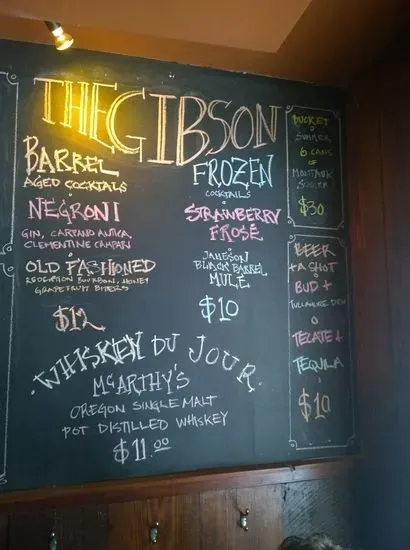 THE GIBSON
BARREL
AGED COCKTAILS
NEGRONI
GIN, CARPANO ANTICA,
CLEMENTINE CAMPARI
OLD FASHIONED
REDEMPTION BOURBON, HONEY
GRAPEFRUIT BITTERS
$12
FROZEN
COCKTAILS
STRAWBERRY
FROSÉ
JAMESON
BLACK BARREL
MULE
$10
WHISKEY DU JOUR
MCCARTHY'S
OREGON SINGLE MALT
POT DISTILLED WHISKEY
$11.00
BUCKET
O
SUMMER
6 CANS
OF
MONTAUK
SUMMER
$30
BEER
+ A SHOT
BUD +
TULLAMORE DEW
O
TECATE +
TEQUILA
$10